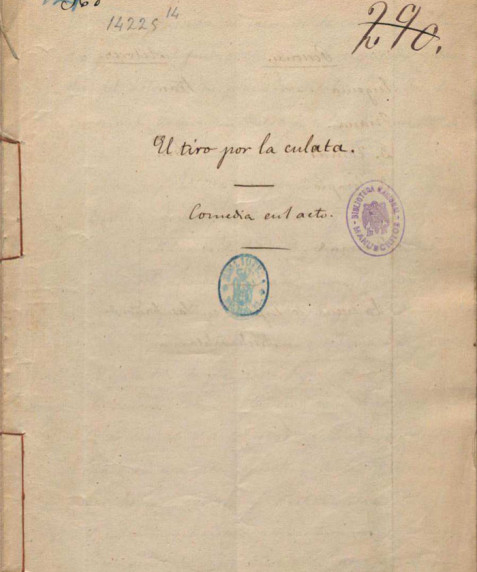 14225 14
290.
El tiro por la culata.
Comedia en 1 acto.
BIBLIOTECA NACIONAL
MANUSCRITOS